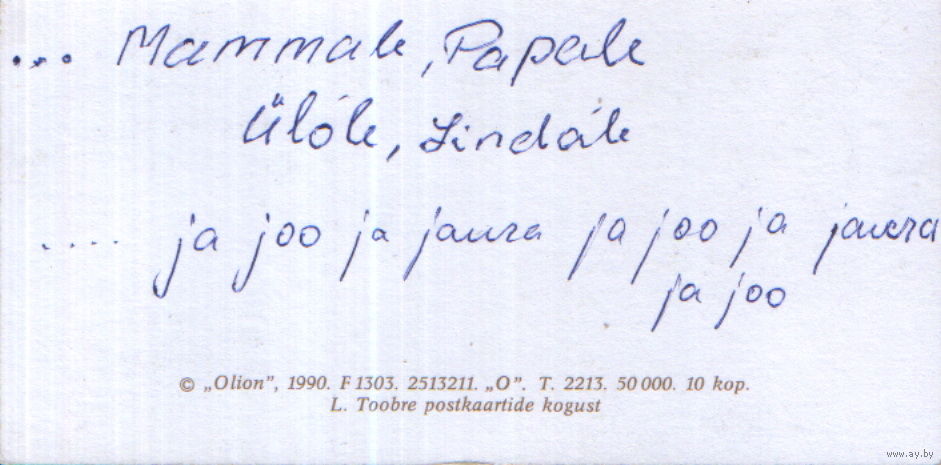 ... Mammale, Papale
Ülole, Lindale
.... ja joo ja jaura ja joo ja jaura
ja joo
© „Olion”, 1990. F 1303. 2513211. „O”. T. 2213. 50 000. 10 kop.
L. Toobre postkaartide kogust
www.ay.by